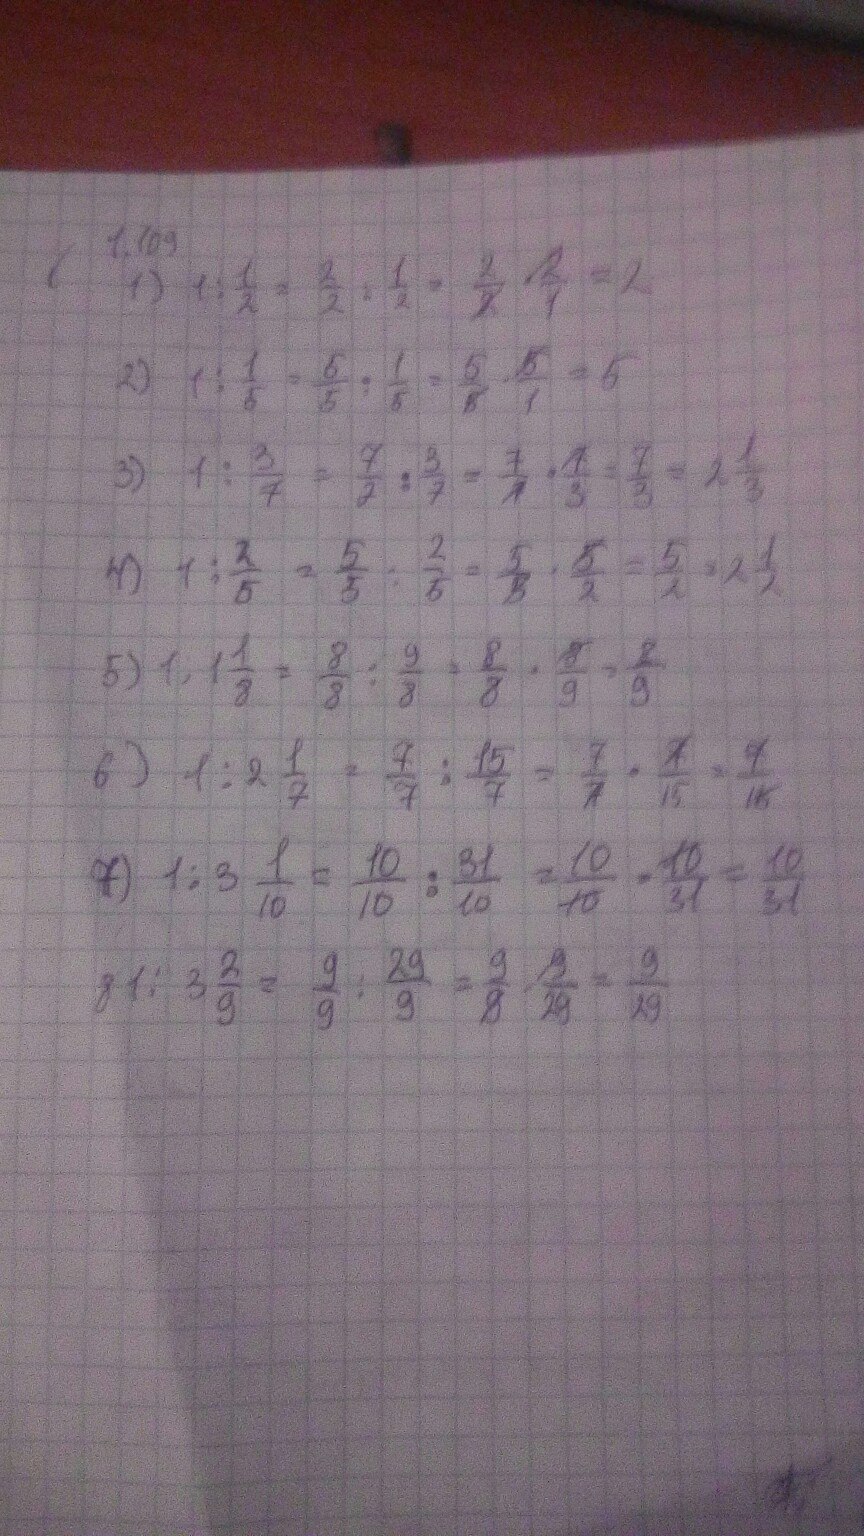 1.109
1) 1 : 1/2 = 2/2 : 1/2 = 2/2 · 2/1 = 2
2) 1 : 1/5 = 5/5 : 1/5 = 5/5 · 5/1 = 5
3) 1 : 3/7 = 7/7 : 3/7 = 7/7 · 7/3 = 7/3 = 2 1/3
4) 1 : 2/5 = 5/5 : 2/5 = 5/5 · 5/2 = 5/2 = 2 1/2
5) 1 : 1 1/8 = 8/8 : 9/8 = 8/8 · 8/9 = 8/9
6) 1 : 2 1/7 = 7/7 : 15/7 = 7/7 · 7/15 = 7/15
7) 1 : 3 1/10 = 10/10 : 31/10 = 10/10 · 10/31 = 10/31
8 1 : 3 2/9 = 9/9 : 29/9 = 9/9 · 9/29 = 9/29